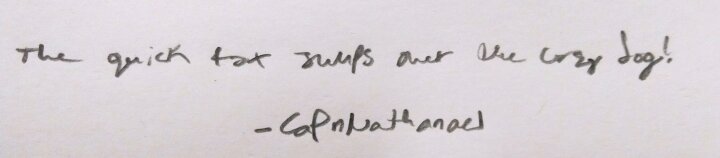 The quick fox jumps over the lazy dog!
-CapnNathanael